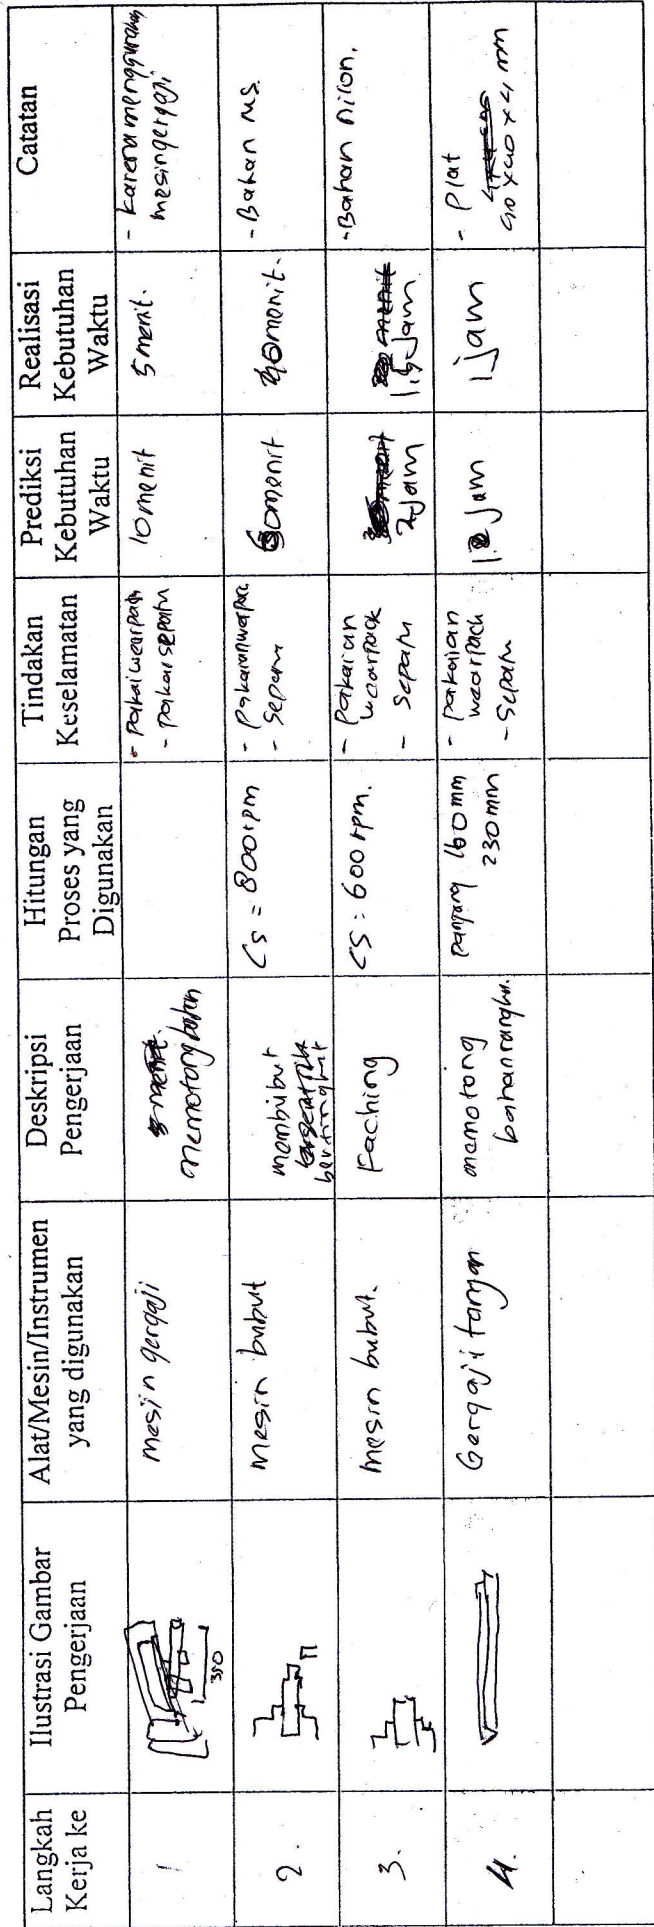 Langkah
Kerja ke
Ilustrasi Gambar
Pengerjaan
Alat/Mesin/Instrumen
yang digunakan
Deskripsi
Pengerjaan
Hitungan
Proses yang
Digunakan
Tindakan
Keselamatan
Prediksi
Kebutuhan
Waktu
Realisasi
Kebutuhan
Waktu
Catatan
1
350
mesin gergaji
memotong bahan
- Pakai wearpack
- pakai sepatu
10 menit
5 menit.
- karena menggunakan
mesin gergaji
2.
mesin bubut
membubut
bertingkat
Cs = 800 rpm
- pakaian wearpack
- sepatu
menit
menit.
- Bahan MS.
3.
mesin bubut.
Faching
CS : 600 rpm.
- pakaian
wearpack
- sepatu
2 jam
1,5 jam
- Bahan nilon.
4.
Gergaji tangan
memotong
bahan rangka.
Panjang 160 mm
230 mm
- pakaian
wearpack
- sepatu
jam
1 jam
- Plat
40 x 40 x 4 mm